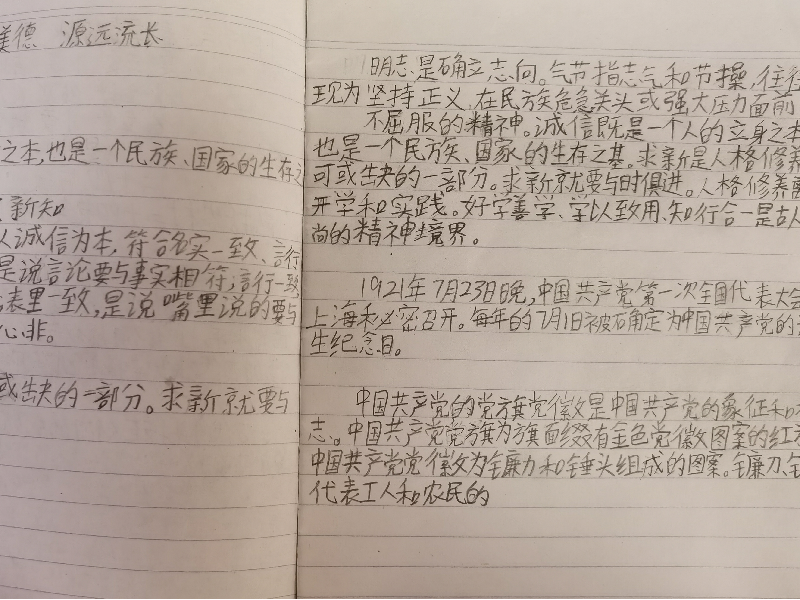 美德 源远流长
之本,也是一个民族、国家的生存之
新知
以诚信为本,符合名实一致、言行
是说言论要与事实相符;言行一致,
表里一致,是说嘴里说的要与
心非。
或缺的一部分。求新就要与
明志是确立志向。气节指志气和节操,往往
现为坚持正义,在民族危急关头或强大压力面前
不屈服的精神。诚信既是一个人的立身之本
也是一个民族、国家的生存之基。求新是人格修养
可或缺的一部分。求新就要与时俱进。人格修养离
开学和实践。好学善学、学以致用、知行合一是古人
尚的精神境界。
1921年7月23日晚,中国共产党第一次全国代表大会
上海秘密召开。每年的7月1日被确定为中国共产党的
生纪念日。
中国共产党的党旗党徽是中国共产党的象征和
志。中国共产党党旗为旗面缀有金色党徽图案的红
中国共产党党徽为镰刀和锤头组成的图案。镰刀、
代表工人和农民的